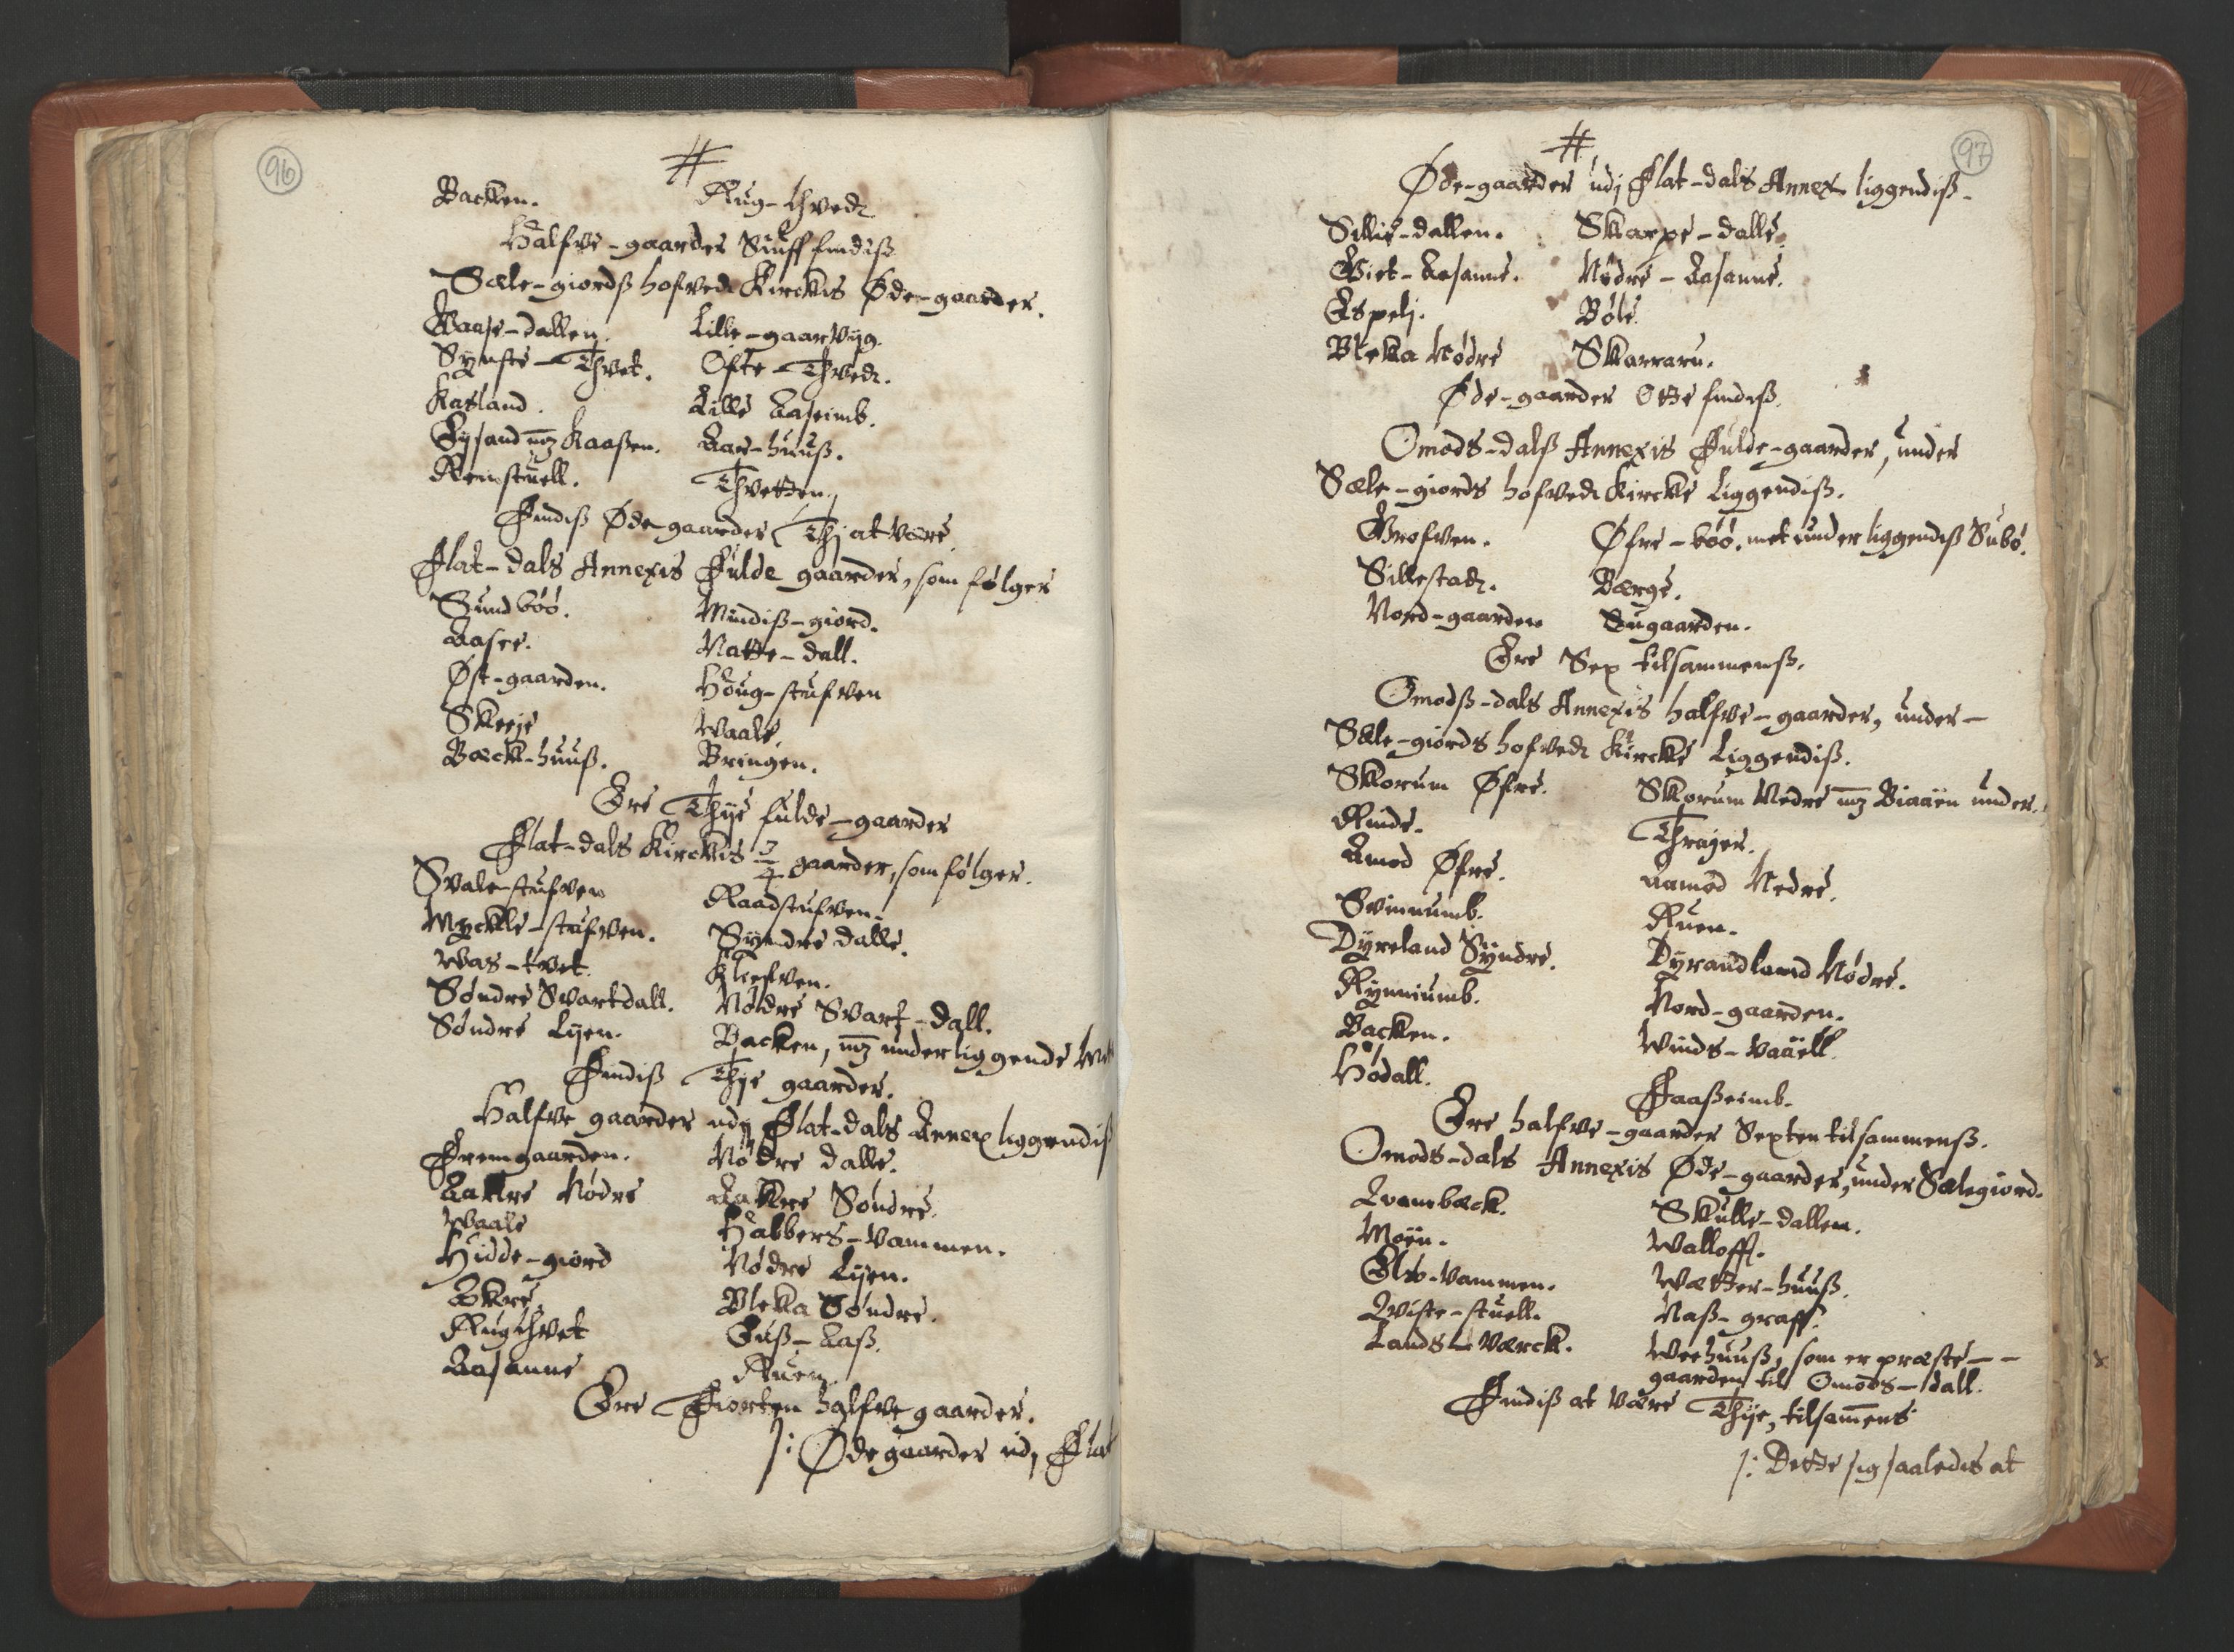 96
#
Backen. Rug-thvedt
Halfve-gaarder Siuff findiß
Sæle-giordß hofvedt Kirckis Øde-gaarder.
Waase-dallen. Lille-gaarVyg.
Synste-Thvet. Ofte-Thvedt.
Kasland. Lille Aaseimb.
Lysand mz Kaaßen. Aar-huuß.
Reinstuell. Thvetten
Findiß Øde gaarder Thj at være
Flat-dals Annexis Fulde gaarder, som følger
Sundböö. Mundiß-giord.
Aasee. Natte-dall.
Øst-gaarden. Houg-stufven
Skeeje Waale
Bæck-huuß. Bringen.
Ere Thye fulde-gaarder
Flat-dals Kirckis 3/4 gaarder, som følger.
Svale-stufven Raadstufven.
Myckle-stufven. Syndre dalle.
Was-tvet. Kleefven.
Søndre Svartdall. Nødre Svart-dall.
Søndre Lyen. Backen, mz underliggende
Findiß Thje gaarder.
Halfve gaarder udj Flat-dals Annex liggendiß
Fremgaarden. Nødre dalle.
Aakre Nødre Aakre Søndre.
Waale Habbers-Vammen.
Hidde-giord Nødre Lyen.
Ekre Bleka Søndre.
Rugthvet Huß-Aaß.
Aasanne Ruen.
Ere Fiorten halfve gaarder.
/: Øde gaarder udj Flat
97
#
Øde-gaarder udj Flat-dals Annex liggendiß-
Sillie-dallen. Skarpe-dalle.
Viet-Aasanne. Nødre-Aasanne.
Espelj. Böle
Bleka Nødre Skarraru.
Øde-gaarder Otte findiß.
Omods-dalß Annexis Fulde-gaarder, under
Sæle-giords hofvedt Kircke Liggendiß.
Grofven. Øfre-böö. met underliggendiß Subö.
Sillestadt. Bærge.
Nord-gaarden Sugaarden.
Ere Sex tilsammenß.
Omodß-dals Annexis halfve-gaarder, under-
Sæle-giords hofvedt Kircke Liggendiß.
Skorum Øfre. Skorum Nedre mz Biaaen under.
Rinde. Thrajer.
Amod Øfre. Aamod Nedre.
Svinnumb. Ruen.
Dyreland Syndre. Dyrandland Nödre.
Rynniumb. Nord-gaarden.
Backen. Winds-Vaaell.
Hødall.
Faaßeimb.
Ere halfve-gaarder Sexten tilsammenß.
Omods-dals Annexis Øde-gaarder, under Sælegiord.
Qvambæck. Skulle-dallen.
Moen. Walloff.
Elw-Vammen. Wætter-huuß.
Qviste-stuell. Naß-graff.
Lands-Værck. Weehuuß, som er præste--
gaarden til Omods-dall.
Findiß at være Thye, tilsamens
/: Dette sig saaledis at